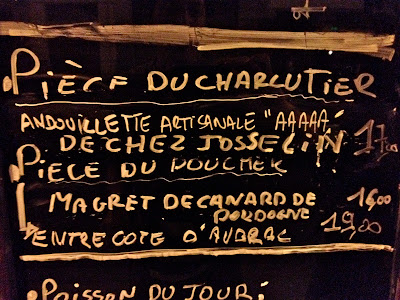 PIÈCE DU CHARCUTIER
ANDOUILLETTE ARTISANALE "AAAAA"
DE CHEZ JOSSELIN 17,00
PIECE DU BOUCHER
MAGRET DE CANARD DE 16,00
DORDOGNE
ENTRECOTE D'AUBRAC 19,00
• POISSON DU JOUR: